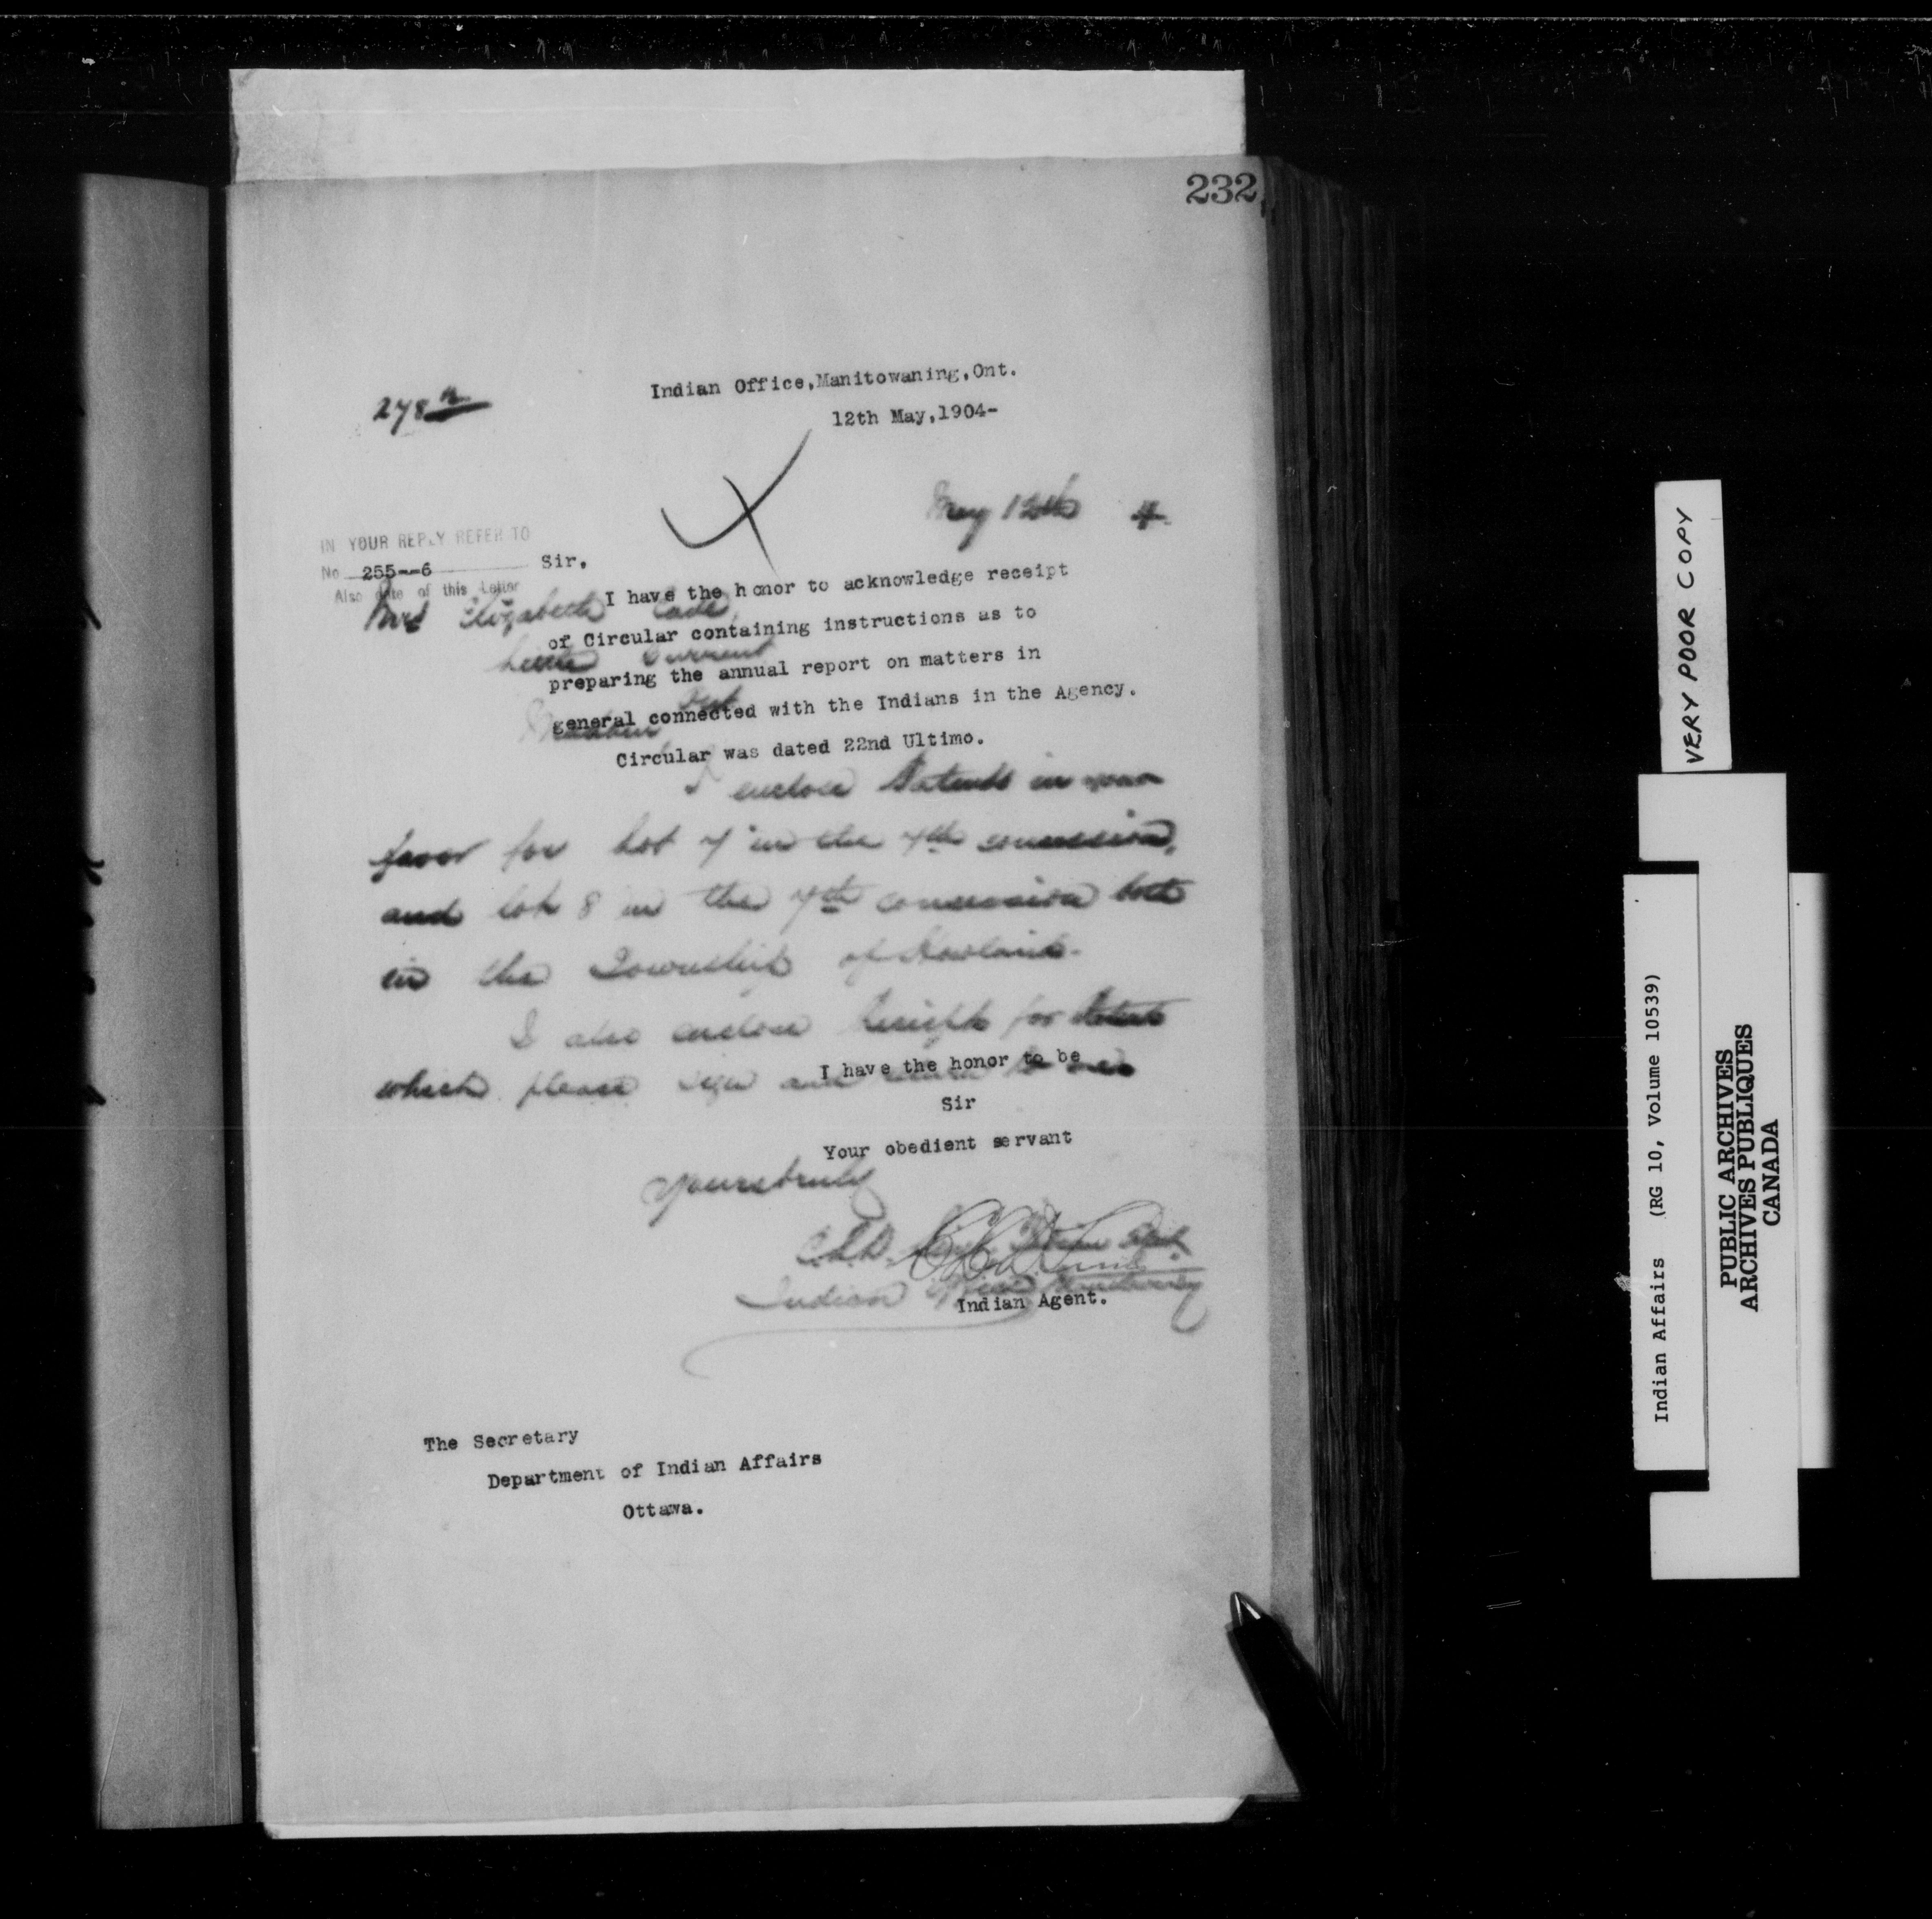 232
Indian Office,Manitowaning,Ont.
12th May,1904-
278
May 12th 4
IN YOUR REPLY REFER TO
No 255--6
Also date of this Letter
Sir,
I have the honor to acknowledge receipt
of Circular containing instructions as to
preparing the annual report on matters in
general connected with the Indians in the Agency.
Circular was dated 22nd Ultimo.
Mrs Elizabeth
Little Current
Ont
Madam
I enclose Patents in your
favor for Lot 7 in the 7th concession,
and Lot 8 in the 7th concession both
in the Township of Howland.
I also enclose Receipts for Patents
which please sign and return to me
Yours truly
C.L.D. Sims Indian Agt.
Indian Office Manitowaning
I have the honor to be
Sir
Your obedient servant
C.L.D. Sims
Indian Agent.
The Secretary
Department of Indian Affairs
Ottawa.
VERY POOR COPY
Indian Affairs (RG 10, Volume 10539)
PUBLIC ARCHIVES
ARCHIVES PUBLIQUES
CANADA